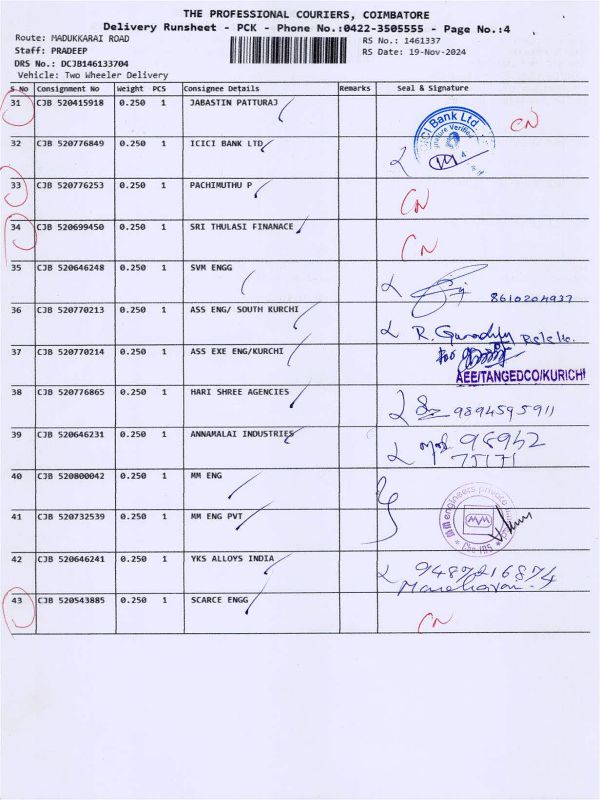 THE PROFESSIONAL COURIERS, COIMBATORE
Delivery Runsheet - PCK - Phone No.:0422-3505555 - Page No.:4
Route: MADUKKARAI ROAD
RS No.: I461337
Staff: PRADEEP
RS Date: 19-Nov-2024
DRS No.: DCJB146133704
Vehicle: Two Wheeler Delivery
S No Consignment No Weight PCS Consignee Details Remarks Seal & Signature
31 CJB 520415918 0.250 1 JABASTIN PATTURAJ CN
32 CJB 520776849 0.250 1 ICICI BANK LTD
ICICI Bank Ltd.
33 CJB 520776253 0.250 1 PACHIMUTHU P CN
34 CJB 520699450 0.250 1 SRI THULASI FINANACE CN
35 CJB 520646248 0.250 1 SVM ENGG 8610204937
36 CJB 520770213 0.250 1 ASS ENG/ SOUTH KURCHI
37 CJB 520770214 0.250 1 ASS EXE ENG/KURCHI
AEE/TANGEDCO/KURICHI
38 CJB 520776865 0.250 1 HARI SHREE AGENCIES 9894595911
39 CJB 520646231 0.250 1 ANNAMALAI INDUSTRIES 98942
75171
40 CJB 520800042 0.250 1 MM ENG
41 CJB 520732539 0.250 1 MM ENG PVT
42 CJB 520646241 0.250 1 YKS ALLOYS INDIA
43 CJB 520543885 0.250 1 SCARCE ENGG CN